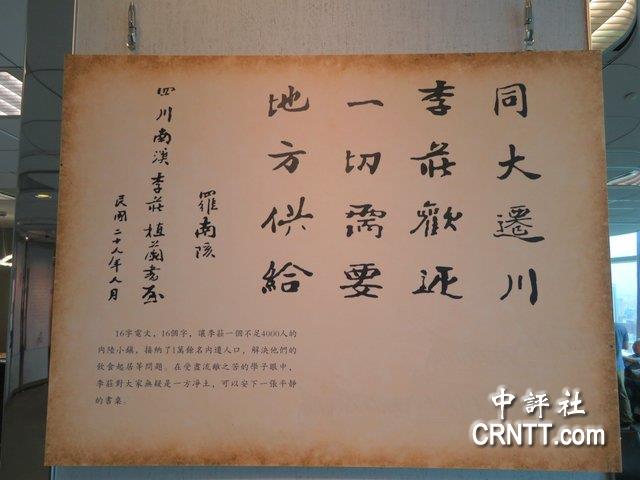 同大遷川
李莊歡迎
一切需要
地方供給
羅南陔
四川南溪李莊植蘭書屋
民國二十九年八月
16字電文，16個字，讓李莊一個不足4000人的
內陸小鎮，接納了1萬餘名內遷人口，解決他們的
飲食起居等問題。在受盡流離之苦的學子眼中，
李莊對大家無疑是一方凈土，可以安下一張平靜
的書桌。
中評社
CRNTT.com